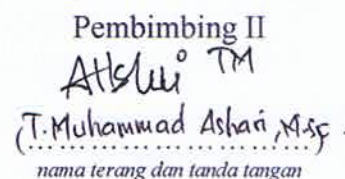 Pembimbing II
TM
(T. Muhammad Ashari, M.Sc
nama terang dan tanda tangan